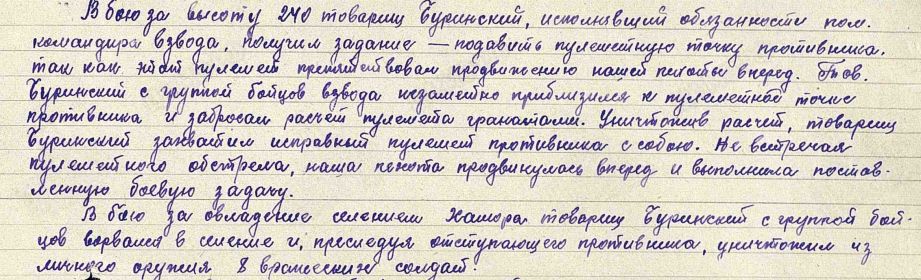 В бою за высоту 240 товарищ Буринский, исполнявший обязанности пом.
командира взвода, получил задание — подавить пулеметную точку противника,
так как этот пулемет препятствовал продвижению нашей пехоты вперед. Тов.
Буринский с группой бойцов взвода незаметно приблизился к пулеметной точке
противника и забросал расчет пулемета гранатами. Уничтожив расчет, товарищ
Буринский захватил исправный пулемет противника с собою. Не встречая
пулеметного обстрела, наша пехота продвинулась вперед и выполнила постав-
ленную боевую задачу.
В бою за овладение селением Хатора товарищ Буринский с группой бой-
цов ворвался в селение и, преследуя отступающего противника, уничтожил из
личного оружия 8 вражеских солдат.